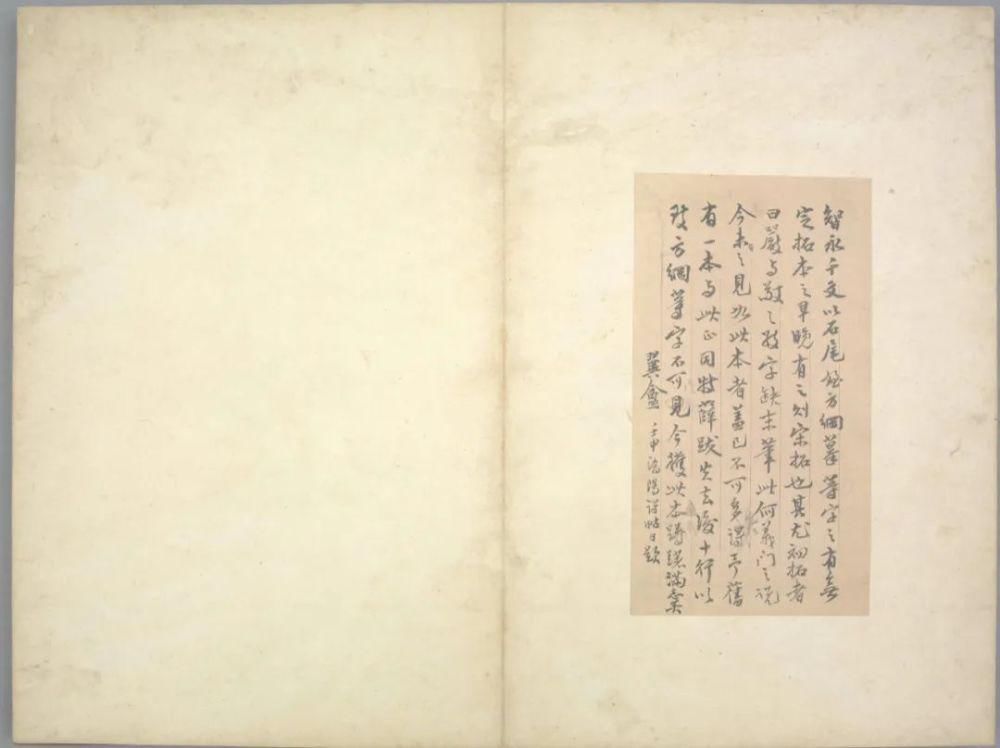 智永千文以石尾姪方綱摹等字之有無
定拓本之早晚有之則宋拓也其尤初拓者
曰嚴與敬之敬字缺末筆此何義門之說
今未之見如此本者蓋已不可多得予舊
有一本與此正同特薛跋失去後十行以
致方綱等字不可見今獲此本躊躇滿矣
翼盦 壬申 日題